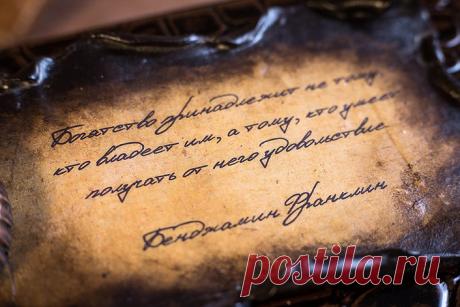 Богатство принадлежит не тому
кто владеет им, а тому, кто умеет
получать от него удовольствие
Бенджамин Франклин
postila.ru